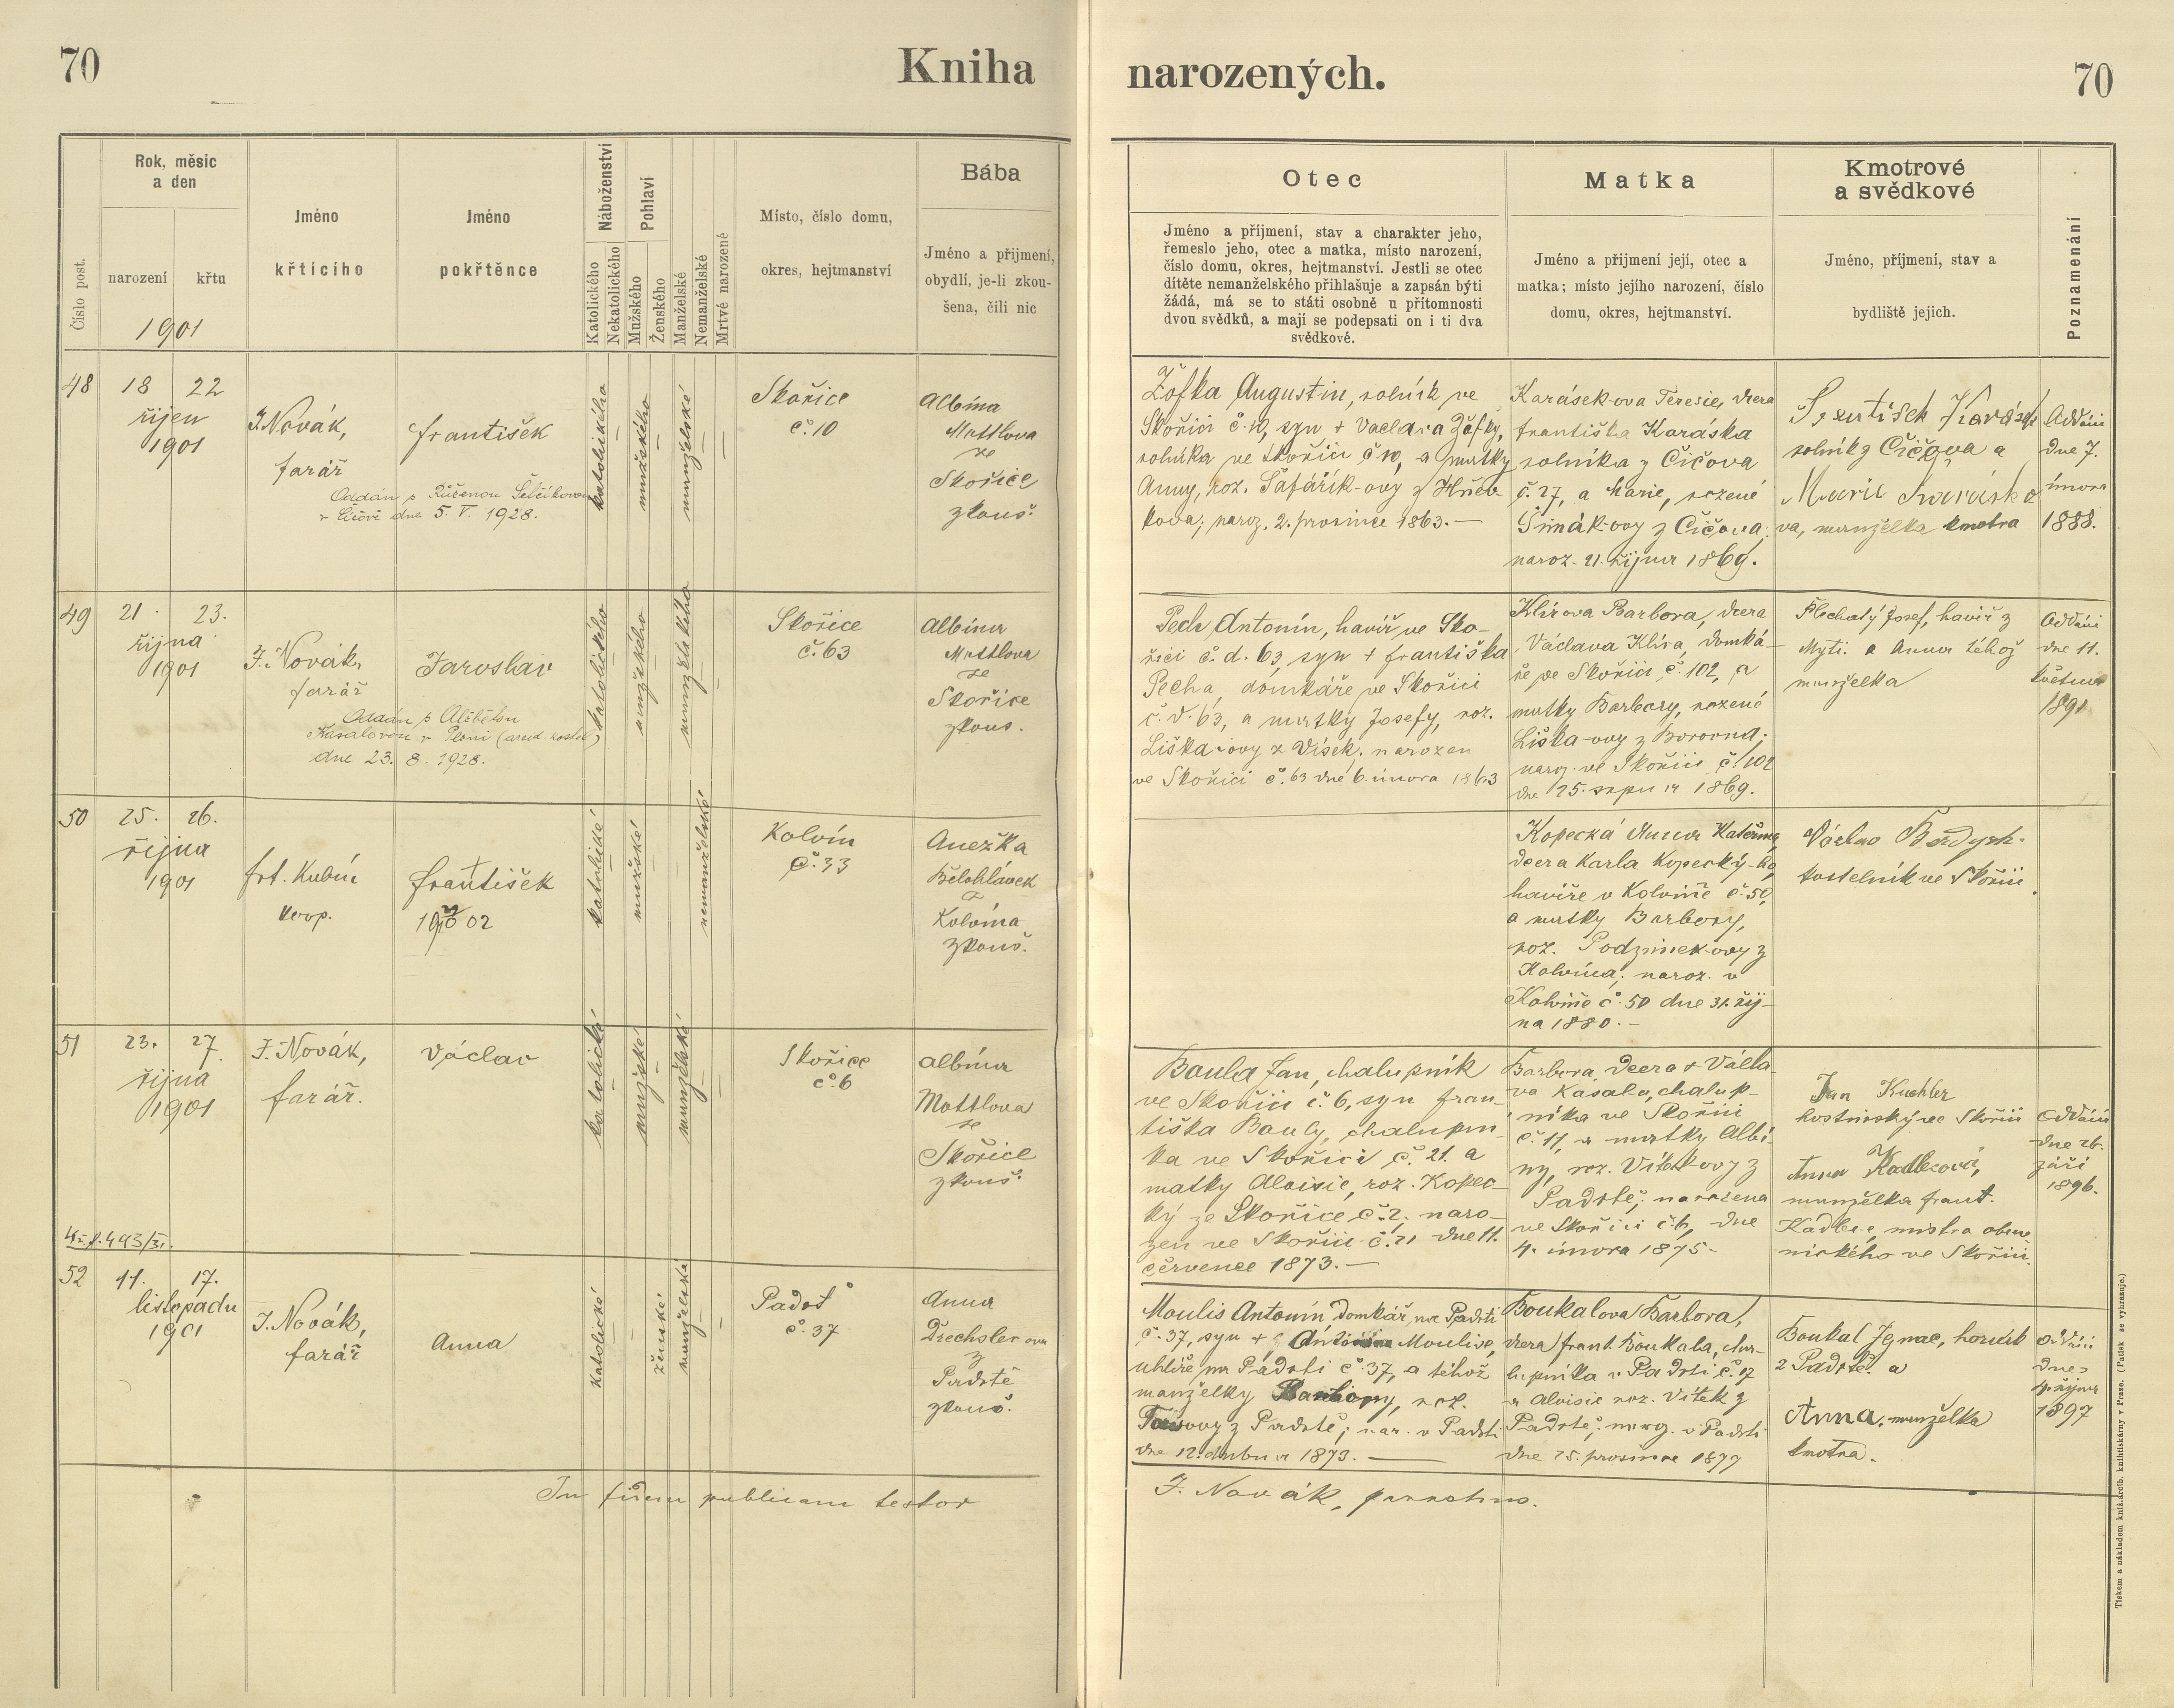 70
Kniha
narozených.
70
Číslo post.
Rok, měsíc
a den
narození
křtu
1901
Jméno
křticího
Jméno
pokřtěnce
Náboženství
Katolického
Nekatolického
Pohlaví
Mužského
Ženského
Manželské
Nemanželské
Mrtvé narozené
Místo, číslo domu,
okres, hejtmanství
Bába
Jméno a přijmení,
obydlí, je-li zkou-
šena, čili nic
Otec
Jméno a příjmení, stav a charakter jeho,
řemeslo jeho, otec a matka, místo narození,
číslo domu, okres, hejtmanství. Jestli se otec
dítěte nemanželského přihlašuje a zapsán býti
žádá, má se to státi osobně u přítomnosti
dvou svědků, a mají se podepsati on i ti dva
svědkové.
Matka
Jméno a přijmení její, otec a
matka; místo jejího narození, číslo
domu, okres, hejtmanství.
Kmotrové
a svědkové
Jméno, příjmení, stav a
bydliště jejich.
Poznamenání
48
18 22
říjen
1901
J. Novák,
farář
František
Oddán s Růženou
v dne 5. V. 1928.
katolického
mužského
manželské
Skořice
č. 10
Albína
Mottlova
ze
Skořice
zkouš.
Žofka Augustin, rolník ve
Skořici č. 10, syn + Vaclava Žofky,
rolníka ve Skořici č 10, a matky
Anny, roz. Šafářík-ovy z Hřeb-
kova; naroz. 2. prosince 1863.—
Karásek-ova Teresie, dcera
Františka Karáska
rolníka z Čičova
č. 27, a Marie, rozené
Šimák-ovy z Čičova;
naroz. 21. října 1869.
František Karásek
rolník z Čičova a
Marie Karásko
va, manželka kmotra
Oddáni
dne 7.
února
1888.
49
21. 23.
října
1901
J. Novák,
farář
Jaroslav
Oddán s Alžbětou
Kasalovou v Plzni (arcid. kostel)
dne 23. 8. 1928.
katolického
mužského
manželského
Skořice
č. 63
Albína
Mottlova
ze
Skořice
zkouš.
Pech Antonín, havíř ve Sko-
řici č. d. 63, syn + Františka
Pecha, domkáře ve Skořici
č. d. 63, a matky Josefy, roz.
Liška-ovy z Vísek, narozen
ve Skořici č. 63 dne 6. února 1863
Klírova Barbora, dcera
Václava Klíra, domká-
ře ve Skořici č. 102, a
matky Barbory, rozené
Liška-ovy z Borovna;
naroz. ve Skořici č. 102
dne 25. srpna 1869.
Plechatý Josef, havíř z
Mýti. a Anna téhož
manželka
Oddáni
dne 11.
května
1891
50
25. 26.
října
1901
Frt. Kubín
koop.
František
02
katolické
mužské
nemanželské
Kolvín
č. 33
Anežka
Bělohlávek
z
Kolvína
zkouš.
Kopecká Anna Kateřina
dcera Karla Kopecký-ho,
havíře v Kolvíně č. 50,
a matky Barbory,
roz. Podzimek-ovy z
Kolvína; naroz. v
Kolvíně č. 50 dne 31. říj-
na 1880.—
Václav
kostelník ve Skořici
51
23. 27.
října
1901
J. Novák,
farář.
Václav
katolické
mužské
manželské
Skořice
č. 6
Albína
Mottlova
ze
Skořice
zkouš.
Baula Jan, chalupník
ve Skořici č. 6, syn Fran-
tiška Bauly, chalupní-
ka ve Skořici č. 21. a
matky Aloisie, roz. Kopec-
ký ze Skořice č. 2, naro-
zen ve Skořici č. 21 dne 11.
července 1873.—
Barbora, dcera + Václa-
va Kasala, chalup-
níka ve Skořici
č. 11, a matky Albí-
ny, roz. Vítek-ovy z
Padrtě; narozena
ve Skořici č. 6, dne
4. února 1875-
Jan Kuchler
hostinský ve Skořici
Anna Kadlecová,
manželka Frant.
Kádlece, mistra obuv-
nického ve Skořici.
Oddáni
dne 26.
září
1896.
493/31.
52
11. 17.
listopadu
1901
J. Novák,
farář
Anna
katolické
ženské
manželské
Padrť
č. 37
Anna
Drechslerova
z
Padrtě
zkouš.
Moulis Antonín, domkář, na Padrti
č. 37, syn + Antonína Moulise,
uhlíře na Padrti č. 37, a téhož
manželky Barbory, roz.
z Padrtě; nar. v Padrti
dne 12. dubna 1873.—
Boukalova Barbora,
dcera Frant. Boukala, cha-
lupníka v Padrti č. 17
a Aloisie roz. Vítek z
Padrtě; naroz. v Padrti
dne 25. prosince 1877
Boukal Ignac, horník
z Padrtě. a
Anna, manželka
kmotra.
Oddáni
dne
4. října
1897
In fidem publicam testor
J. Novák, parochus.
Tiskem a nákladem kníž. arcib. knihtiskárny v Praze. (Patisk se vyhrazuje.)